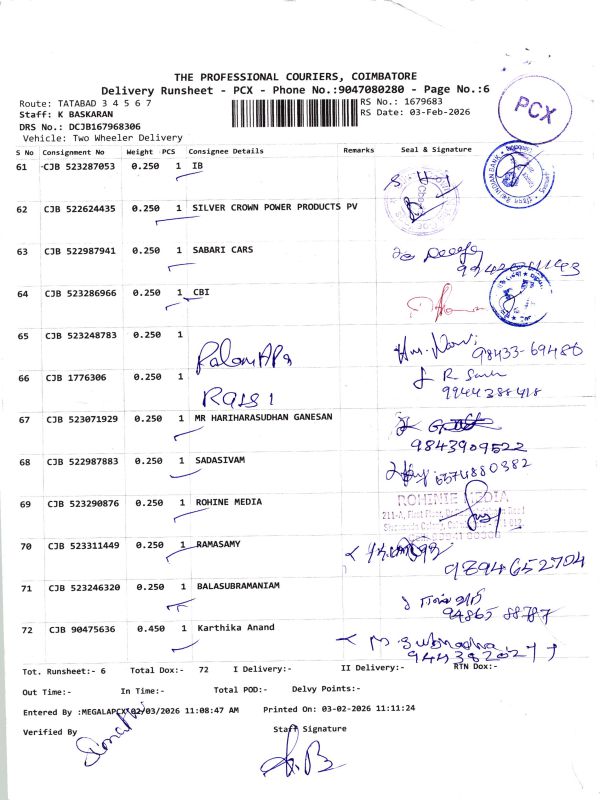 THE PROFESSIONAL COURIERS, COIMBATORE
Delivery Runsheet - PCX - Phone No.:9047080280 - Page No.:6
Route: TATABAD 3 4 5 6 7
RS No.: 1679683
Staff: K BASKARAN
RS Date: 03-Feb-2026
DRS No.: DCJB167968306
Vehicle: Two Wheeler Delivery
PCX
S No Consignment No Weight PCS Consignee Details Remarks Seal & Signature
61 CJB 523287053 0.250 1 IB
62 CJB 522624435 0.250 1 SILVER CROWN POWER PRODUCTS PV
63 CJB 522987941 0.250 1 SABARI CARS
64 CJB 523286966 0.250 1 CBI
65 CJB 523248783 0.250 1
98433-69486
66 CJB 1776306 0.250 1
9944388418
67 CJB 523071929 0.250 1 MR HARIHARASUDHAN GANESAN
9843909522
68 CJB 522987883 0.250 1 SADASIVAM
69 CJB 523290876 0.250 1 ROHINE MEDIA
ROHINIE MEDIA
70 CJB 523311449 0.250 1 RAMASAMY
9894652704
71 CJB 523246320 0.250 1 BALASUBRAMANIAM
94865 88787
72 CJB 90475636 0.450 1 Karthika Anand
Tot. Runsheet:- 6 Total Dox:- 72 I Delivery:- II Delivery:- RTN Dox:-
Out Time:- In Time:- Total POD:- Delvy Points:-
Entered By :MEGALAPCX 02/03/2026 11:08:47 AM Printed On: 03-02-2026 11:11:24
Verified By Staff Signature